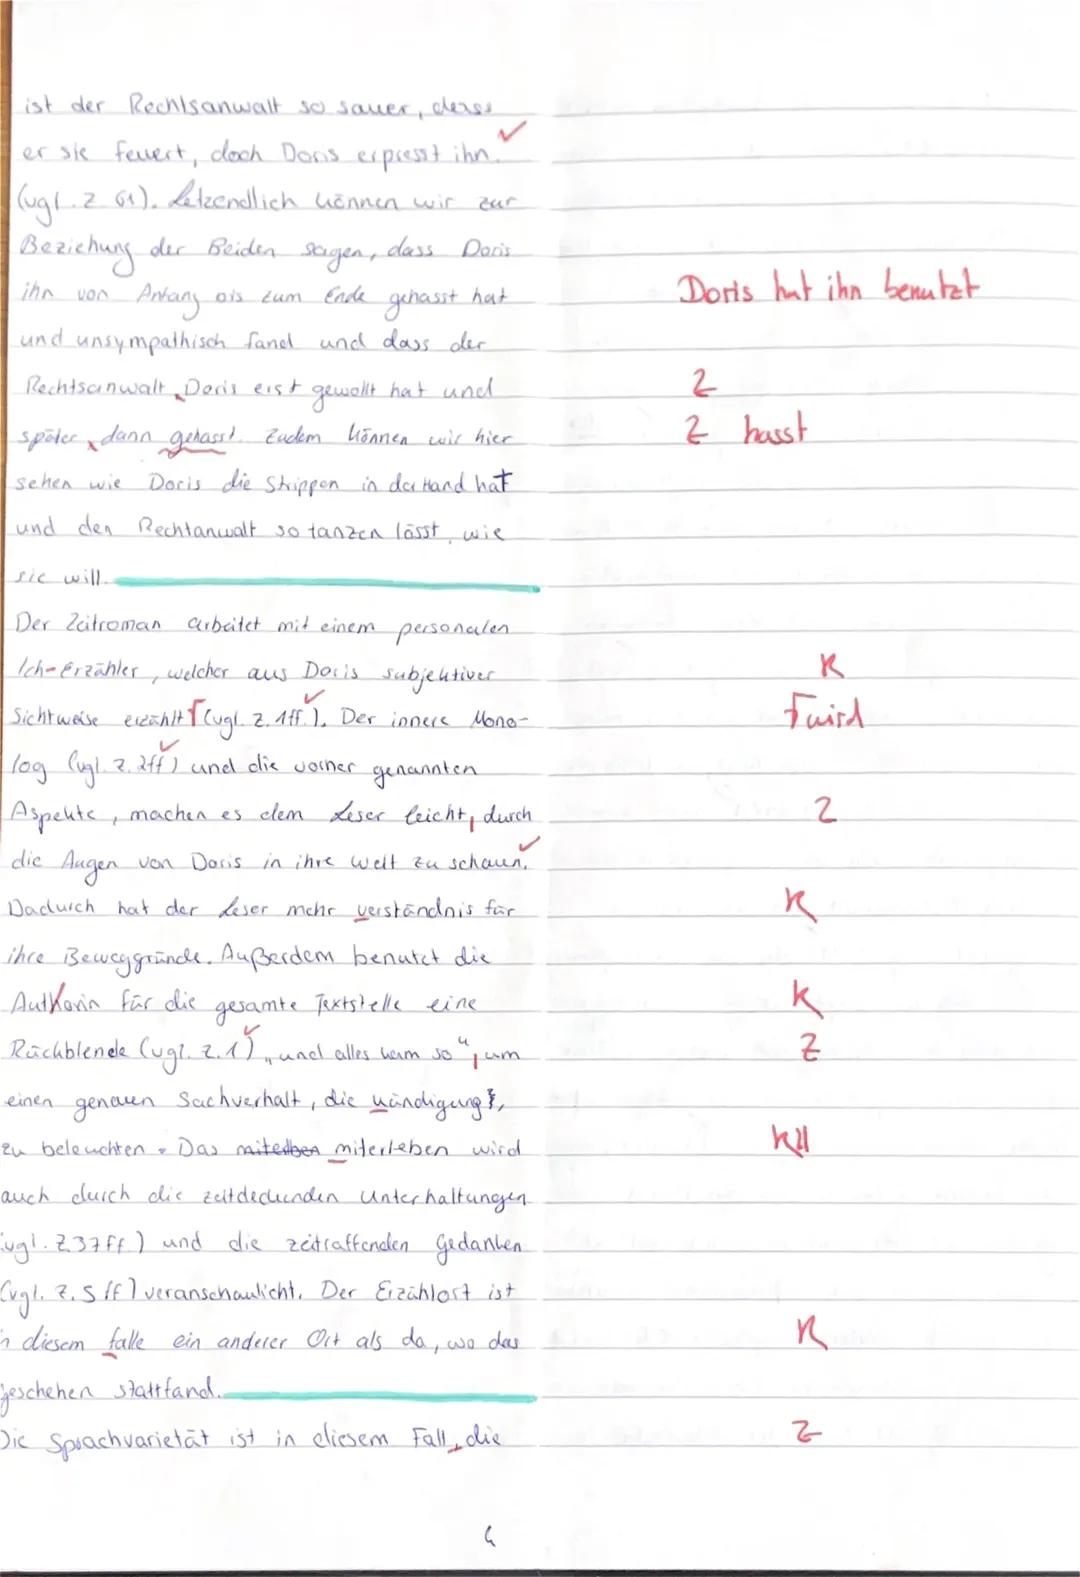 ist der Rechtsanwalt so sauer, dass
er sie feuert, doch Doris erpresst ihn.
(vgl. Z 61). Letzendlich können wir zur
Beziehung der Beiden sagen, dass Doris
ihn von Anfang bis zum Ende gehasst hat
Doris hat ihn benutzt
und unsympathisch fand und dass der
Rechtsanwalt Doris erst gewollt hat und
Z
später dann gehasst. Zudem können wir hier
Z hasst
sehen wie Doris die Strippen in der Hand hat
und den Rechtanwalt so tanzen lässt, wie
sie will.
Der Zeitroman arbeitet mit einem personalen
Ich-Erzähler, welcher aus Doris subjektiver
R
Sichtweise erzählt (vgl. Z. 1ff.). Der innere Mono-
Γ wird
log (vgl. Z. 2ff) und die vorher genannten
Aspekte, machen es dem Leser leicht, durch
Z
die Augen von Doris in ihre Welt zu schauen.
Dadurch hat der Leser mehr verständnis für
R
ihre Beweggründe. Außerdem benutzt die
Authorin für die gesamte Textstelle eine
R
Rückblende (vgl. Z. 1) „und alles kam so“, um
Z
einen genauen Sachverhalt, die kündigung,
zu beleuchten. Das miterleben wird
R
auch durch die zeitdeckenden Unterhaltungen
(vgl. Z. 37ff) und die zeitraffenden Gedanken
(vgl. Z. 5 ff) veranschaulicht. Der Erzählort ist
in diesem falle ein anderer Ort als da, wo das
R
geschehen stattfand.
Die Sprachvarietät ist in diesem Fall, die
Z
4